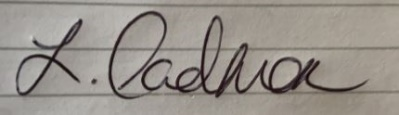 L. Cadmon